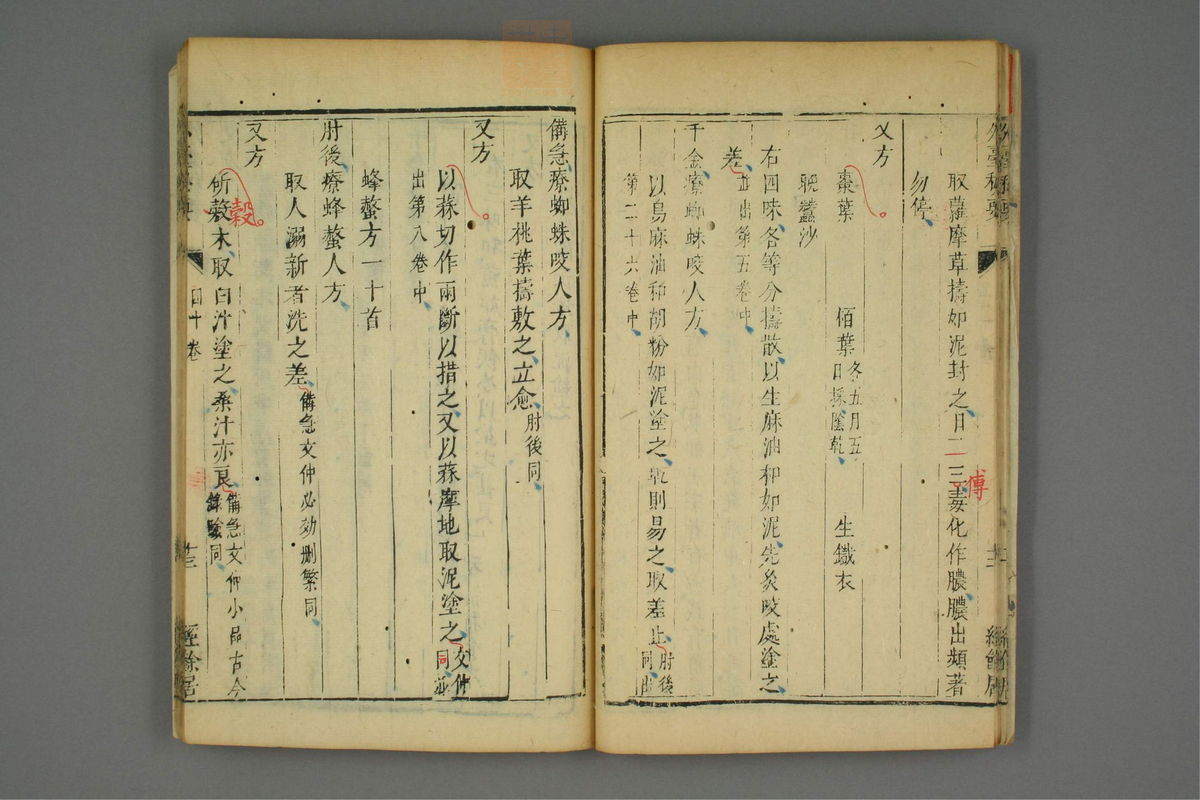 取蘿摩草擣如泥封之日二三毒化作膿膿出頻著
傅
勿停
又方
棗葉　栢葉冬五月五日採陰乾　生鐵衣
晚蠶沙
右四味各等分擣散以生麻油和如泥先灸咬處塗之
差並出第五卷中
千金療蜘蛛咬人方
以烏麻油和胡粉如泥塗之乾則易之取差止肘後同出
第二十六卷中
備急療蜘蛛咬人方
取羊桃葉擣敷之立愈肘後同
又方
以蒜切作兩斷以揩之又以蒜摩地取泥塗之文仲同並
出第八卷中
蜂螫方一十首
肘後療蜂螫人方
取人溺新者洗之差備急文仲必効刪繁同
又方
斫穀木取白汁塗之桑汁亦良備急文仲小品古今錄驗同
穀
四十卷
經餘居